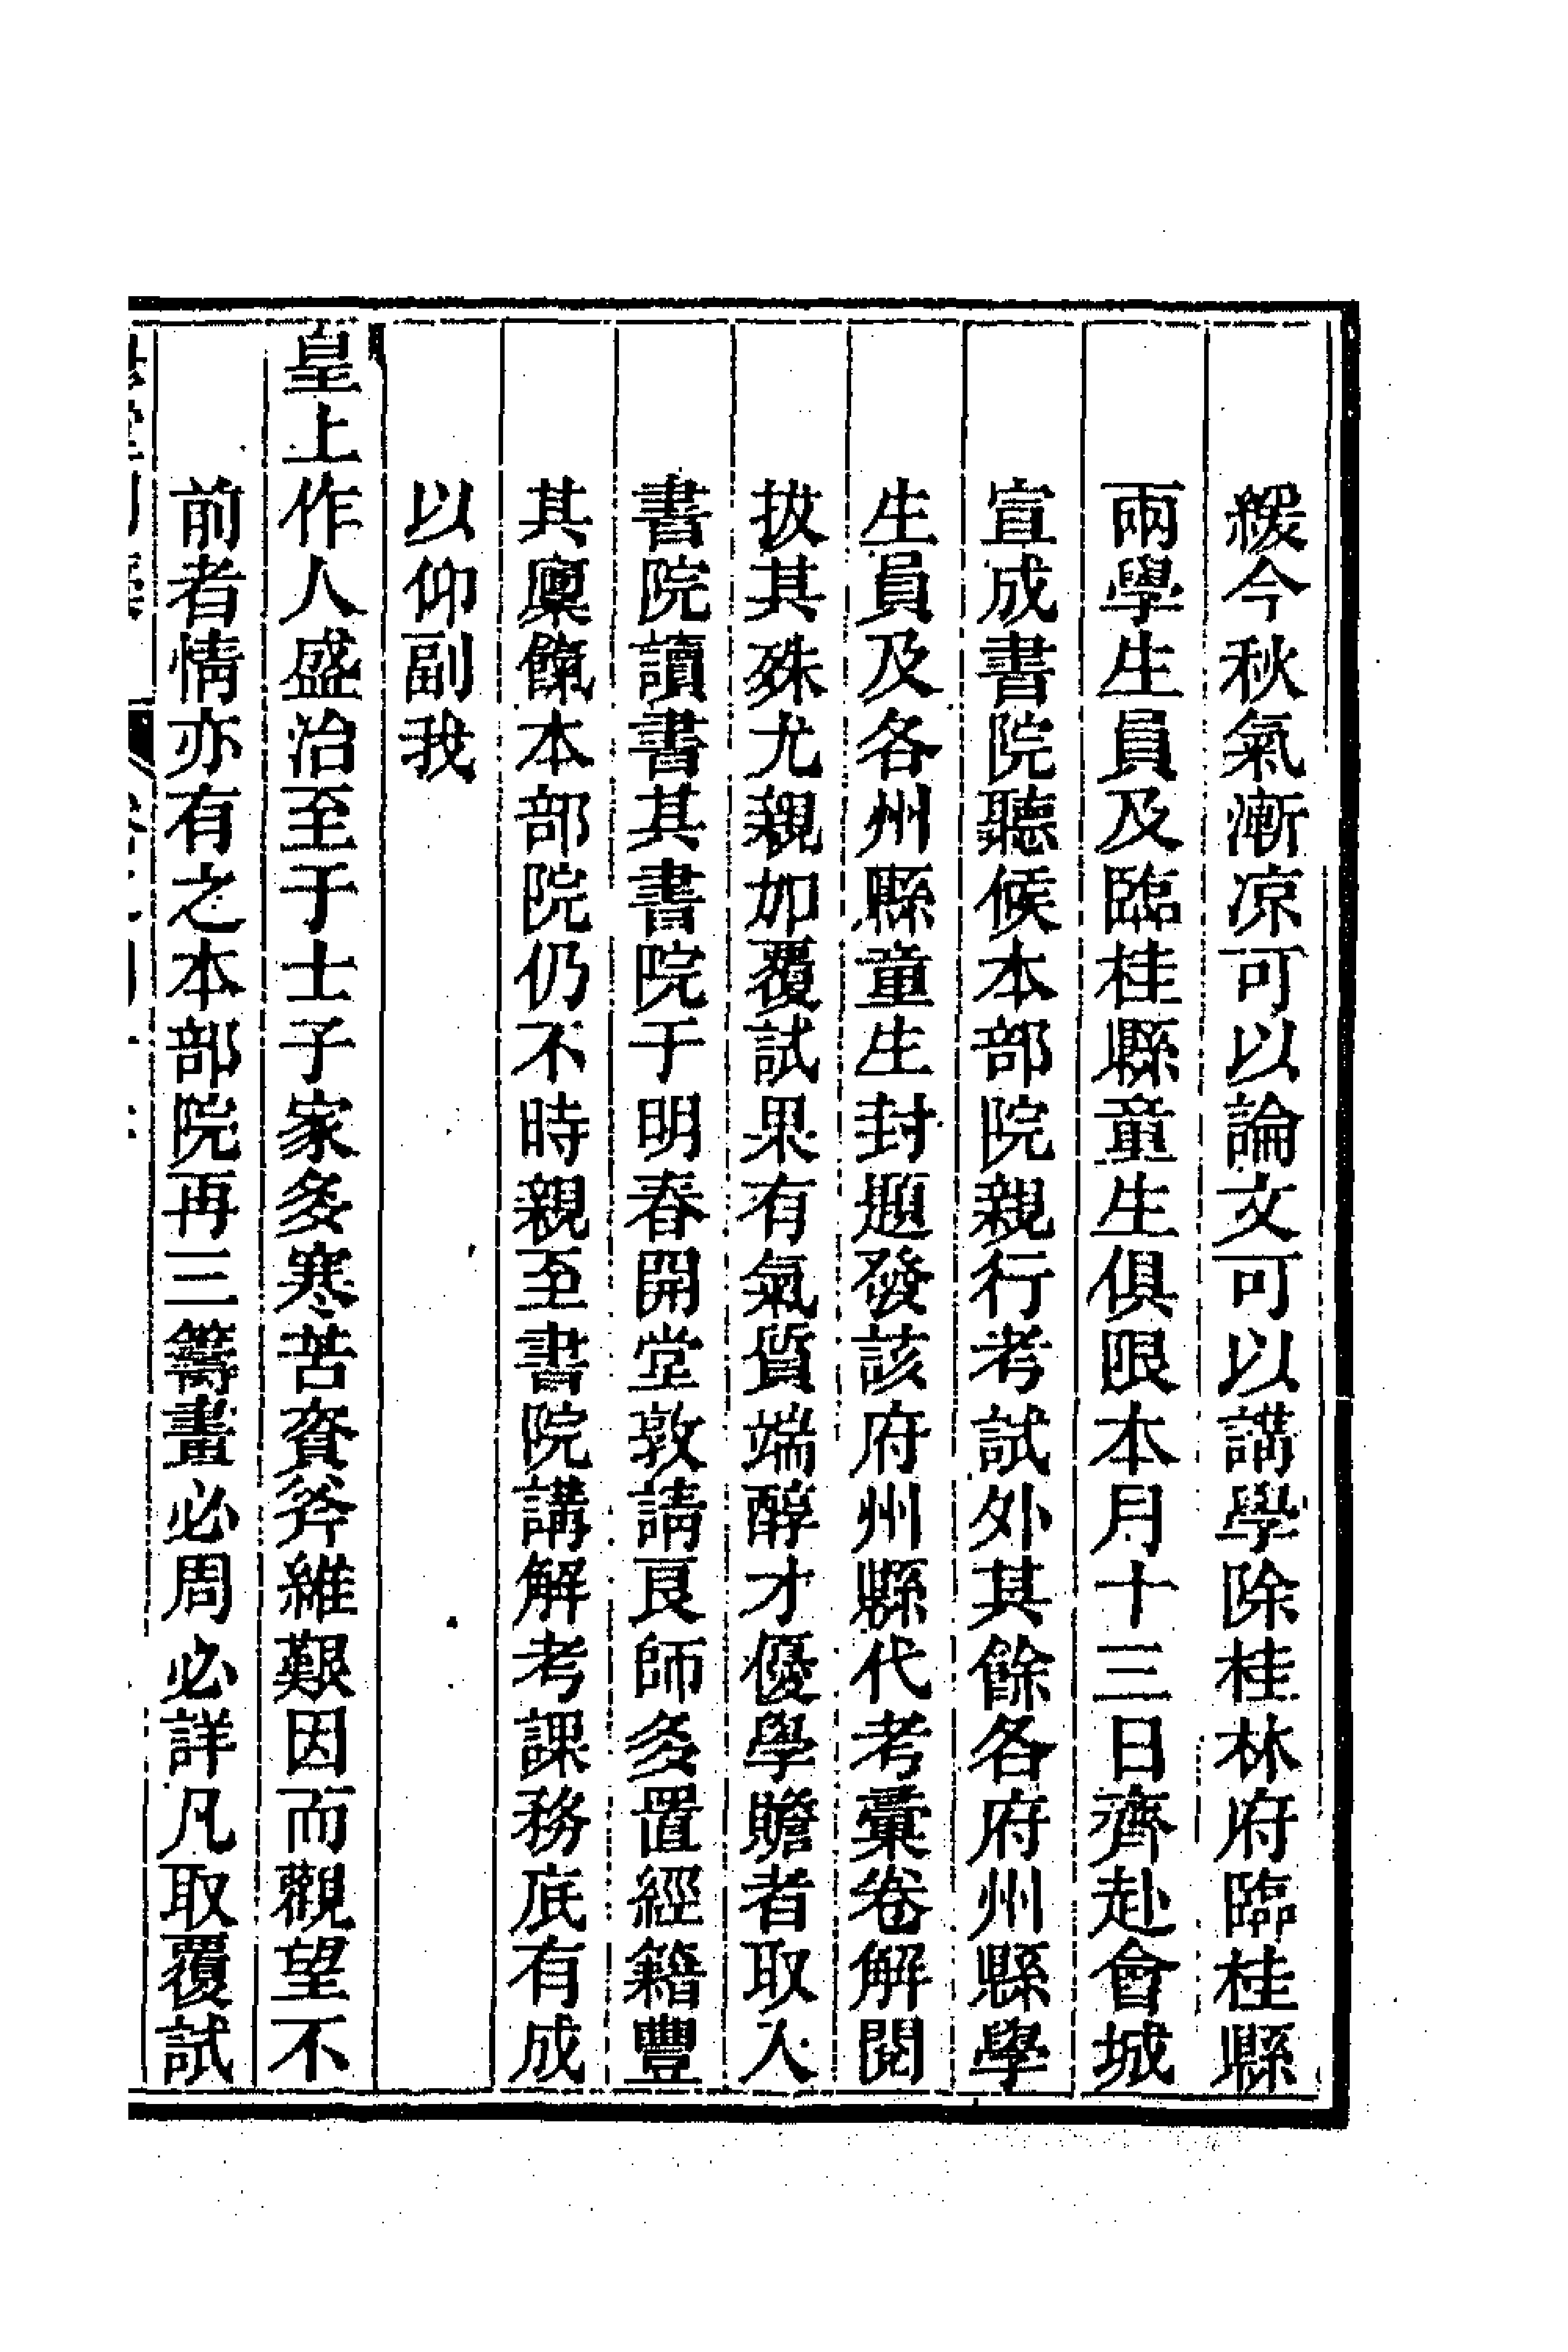 緩今秋氣漸凉可以論文可以講學除桂林府臨桂縣
兩學生員及臨桂縣童生俱限本月十三日齊赴會城
宣成書院聽候本部院親行考試外其餘各府州縣學
生員及各州縣童生封題發該府州縣代考彙卷解閱
拔其殊尤親加覆試果有氣質端醇才優學贍者取入
書院讀書其書院于明春開堂敦請良師多置經籍豐
其廩餼本部院仍不時親至書院講解考課務底有成
以仰副我
皇上作人盛治至于士子家多寒苦資斧維艱因而觀望不
前者情亦有之本部院再三籌畫必周必詳凡取覆試